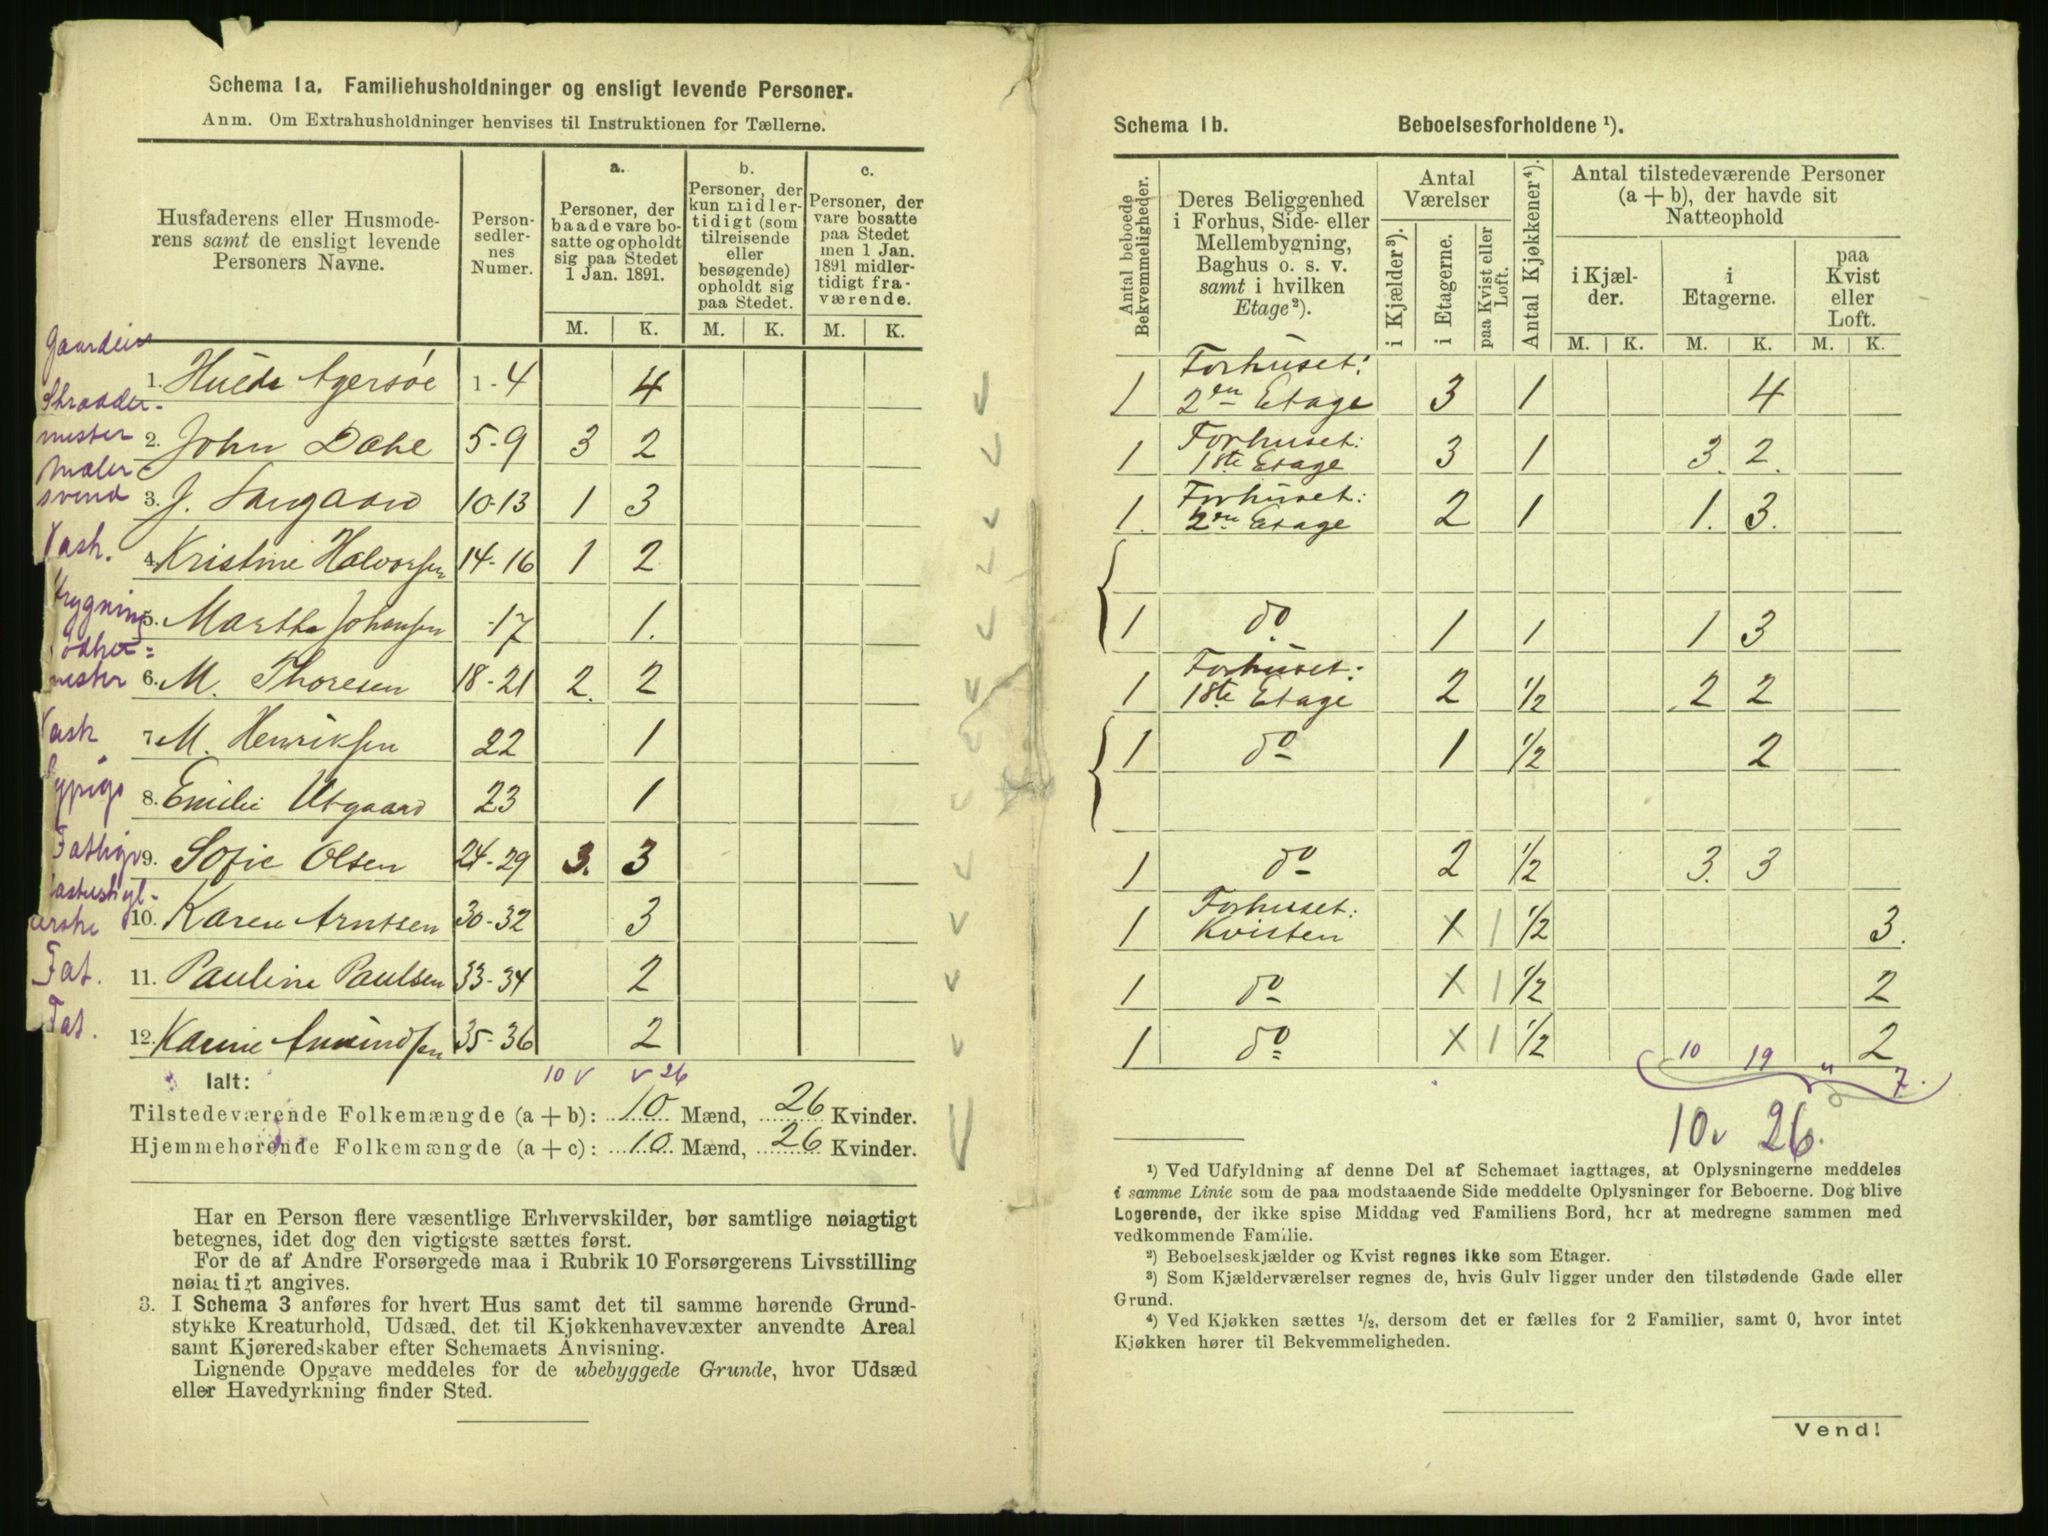 Schema 1a. Familiehusholdninger og ensligt levende Personer.
Anm. Om Extrahusholdninger henvises til Instruktionen for Tællerne.
Husfaderens eller Husmoderens samt de ensligt levende Personers Navne.
Personsedlernes Numer.
a.
Personer, der baade vare bosatte og opholdt sig paa Stedet 1 Jan. 1891.
b.
Personer, der kun midlertidigt (som tilreisende eller besøgende) opholdt sig paa Stedet.
c.
Personer, der vare bosatte paa Stedet men 1 Jan. 1891 midlertidigt fraværende.
M. K. M. K. M. K.
1. Agersøe 1-4 4
Skrædder-
mester 2. John Dahl 5-9 3 2
Maler
svend 3. J. 10-13 1 3
Vask. 4. Kristine Halvorsen 14-16 1 2
5. Martha Johansen -17 1.
mester 6. M. Thoresen 18-21 2. 2
Vask 7. M. Henriksen 22 1
Sypige 8. Emilie Utgaard 23 1
Fattig 9. Sofie Olsen 24-29 3. 3
10. Karen Arntsen 30-32 3
Fat. 11. Pauline Paulsen 33-34 2
Fat. 12. Karine Amundsen 35-36 2
Ialt: 10 v v 26
Tilstedeværende Folkemængde (a + b): 10 Mænd, 26 Kvinder.
Hjemmehørende Folkemængde (a + c): 10 Mænd, 26 Kvinder.
Har en Person flere væsentlige Erhvervskilder, bør samtlige nøiagtigt
betegnes, idet dog den vigtigste sættes først.
For de af Andre Forsørgede maa i Rubrik 10 Forsørgerens Livsstilling
nøiagtigt angives.
3. I Schema 3 anføres for hvert Hus samt det til samme hørende Grund-
stykke Kreaturhold, Udsæd, det til Kjøkkenhavevæxter anvendte Areal
samt Kjøreredskaber efter Schemaets Anvisning.
Lignende Opgave meddeles for de ubebyggede Grunde, hvor Udsæd
eller Havedyrkning finder Sted.
Schema 1b. Beboelsesforholdene ¹).
Antal beboede Bekvemmeligheder.
Deres Beliggenhed i Forhus, Side- eller Mellembygning, Baghus o. s. v. samt i hvilken Etage²).
Antal Værelser
i Kjælder³).
i Etagerne.
paa Kvist eller Loft.
Antal Kjøkkener⁴).
Antal tilstedeværende Personer (a + b), der havde sit Natteophold
i Kjælder.
i Etagerne.
paa Kvist eller Loft.
M. K. M. K. M. K.
1 Forhuset: 2en Etage 3 1 4
1 Forhuset: 1ste Etage 3 1 3. 2.
1. Forhuset: 2en Etage 2 1 1. 3.
1 do 1 1 1 3
1 Forhuset: 1ste Etage 2 1/2 2 2
1 do 1 1/2 2
1 do 2 1/2 3. 3
1 Forhuset: Kvisten 1 1 1/2 3.
1 do 1 1 1/2 2
1 do 1 1 1/2 2
10 19 " 7.
10 v 26.
¹) Ved Udfyldning af denne Del af Schemaet iagttages, at Oplysningerne meddeles
i samme Linie som de paa modstaaende Side meddelte Oplysninger for Beboerne. Dog blive
Logerende, der ikke spise Middag ved Familiens Bord, her at medregne sammen med
vedkommende Familie.
²) Beboelseskjælder og Kvist regnes ikke som Etager.
³) Som Kjælderværelser regnes de, hvis Gulv ligger under den tilstødende Gade eller
Grund.
⁴) Ved Kjøkken sættes ½, dersom det er fælles for 2 Familier, samt 0, hvor intet
Kjøkken hører til Bekvemmeligheden.
Vend!